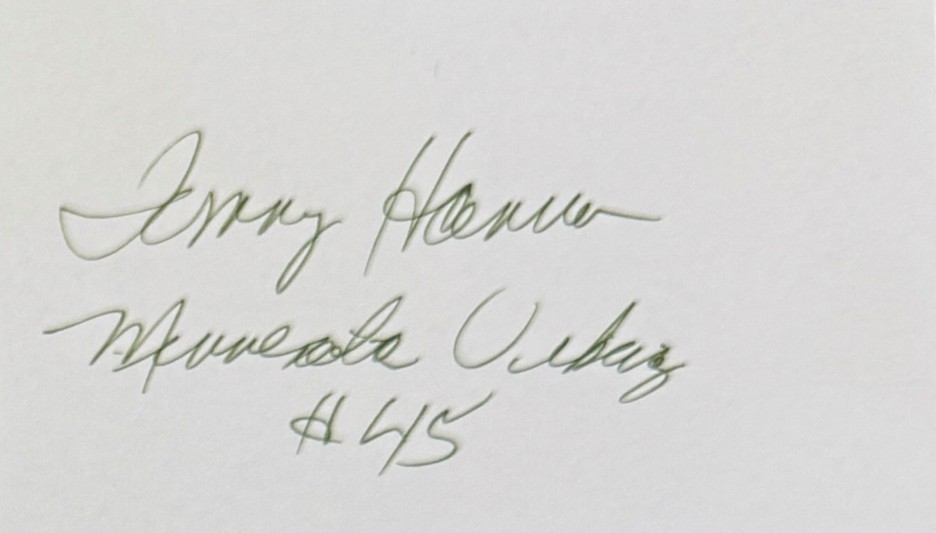 Tommy Hannon
Minnesota Vikings
#45